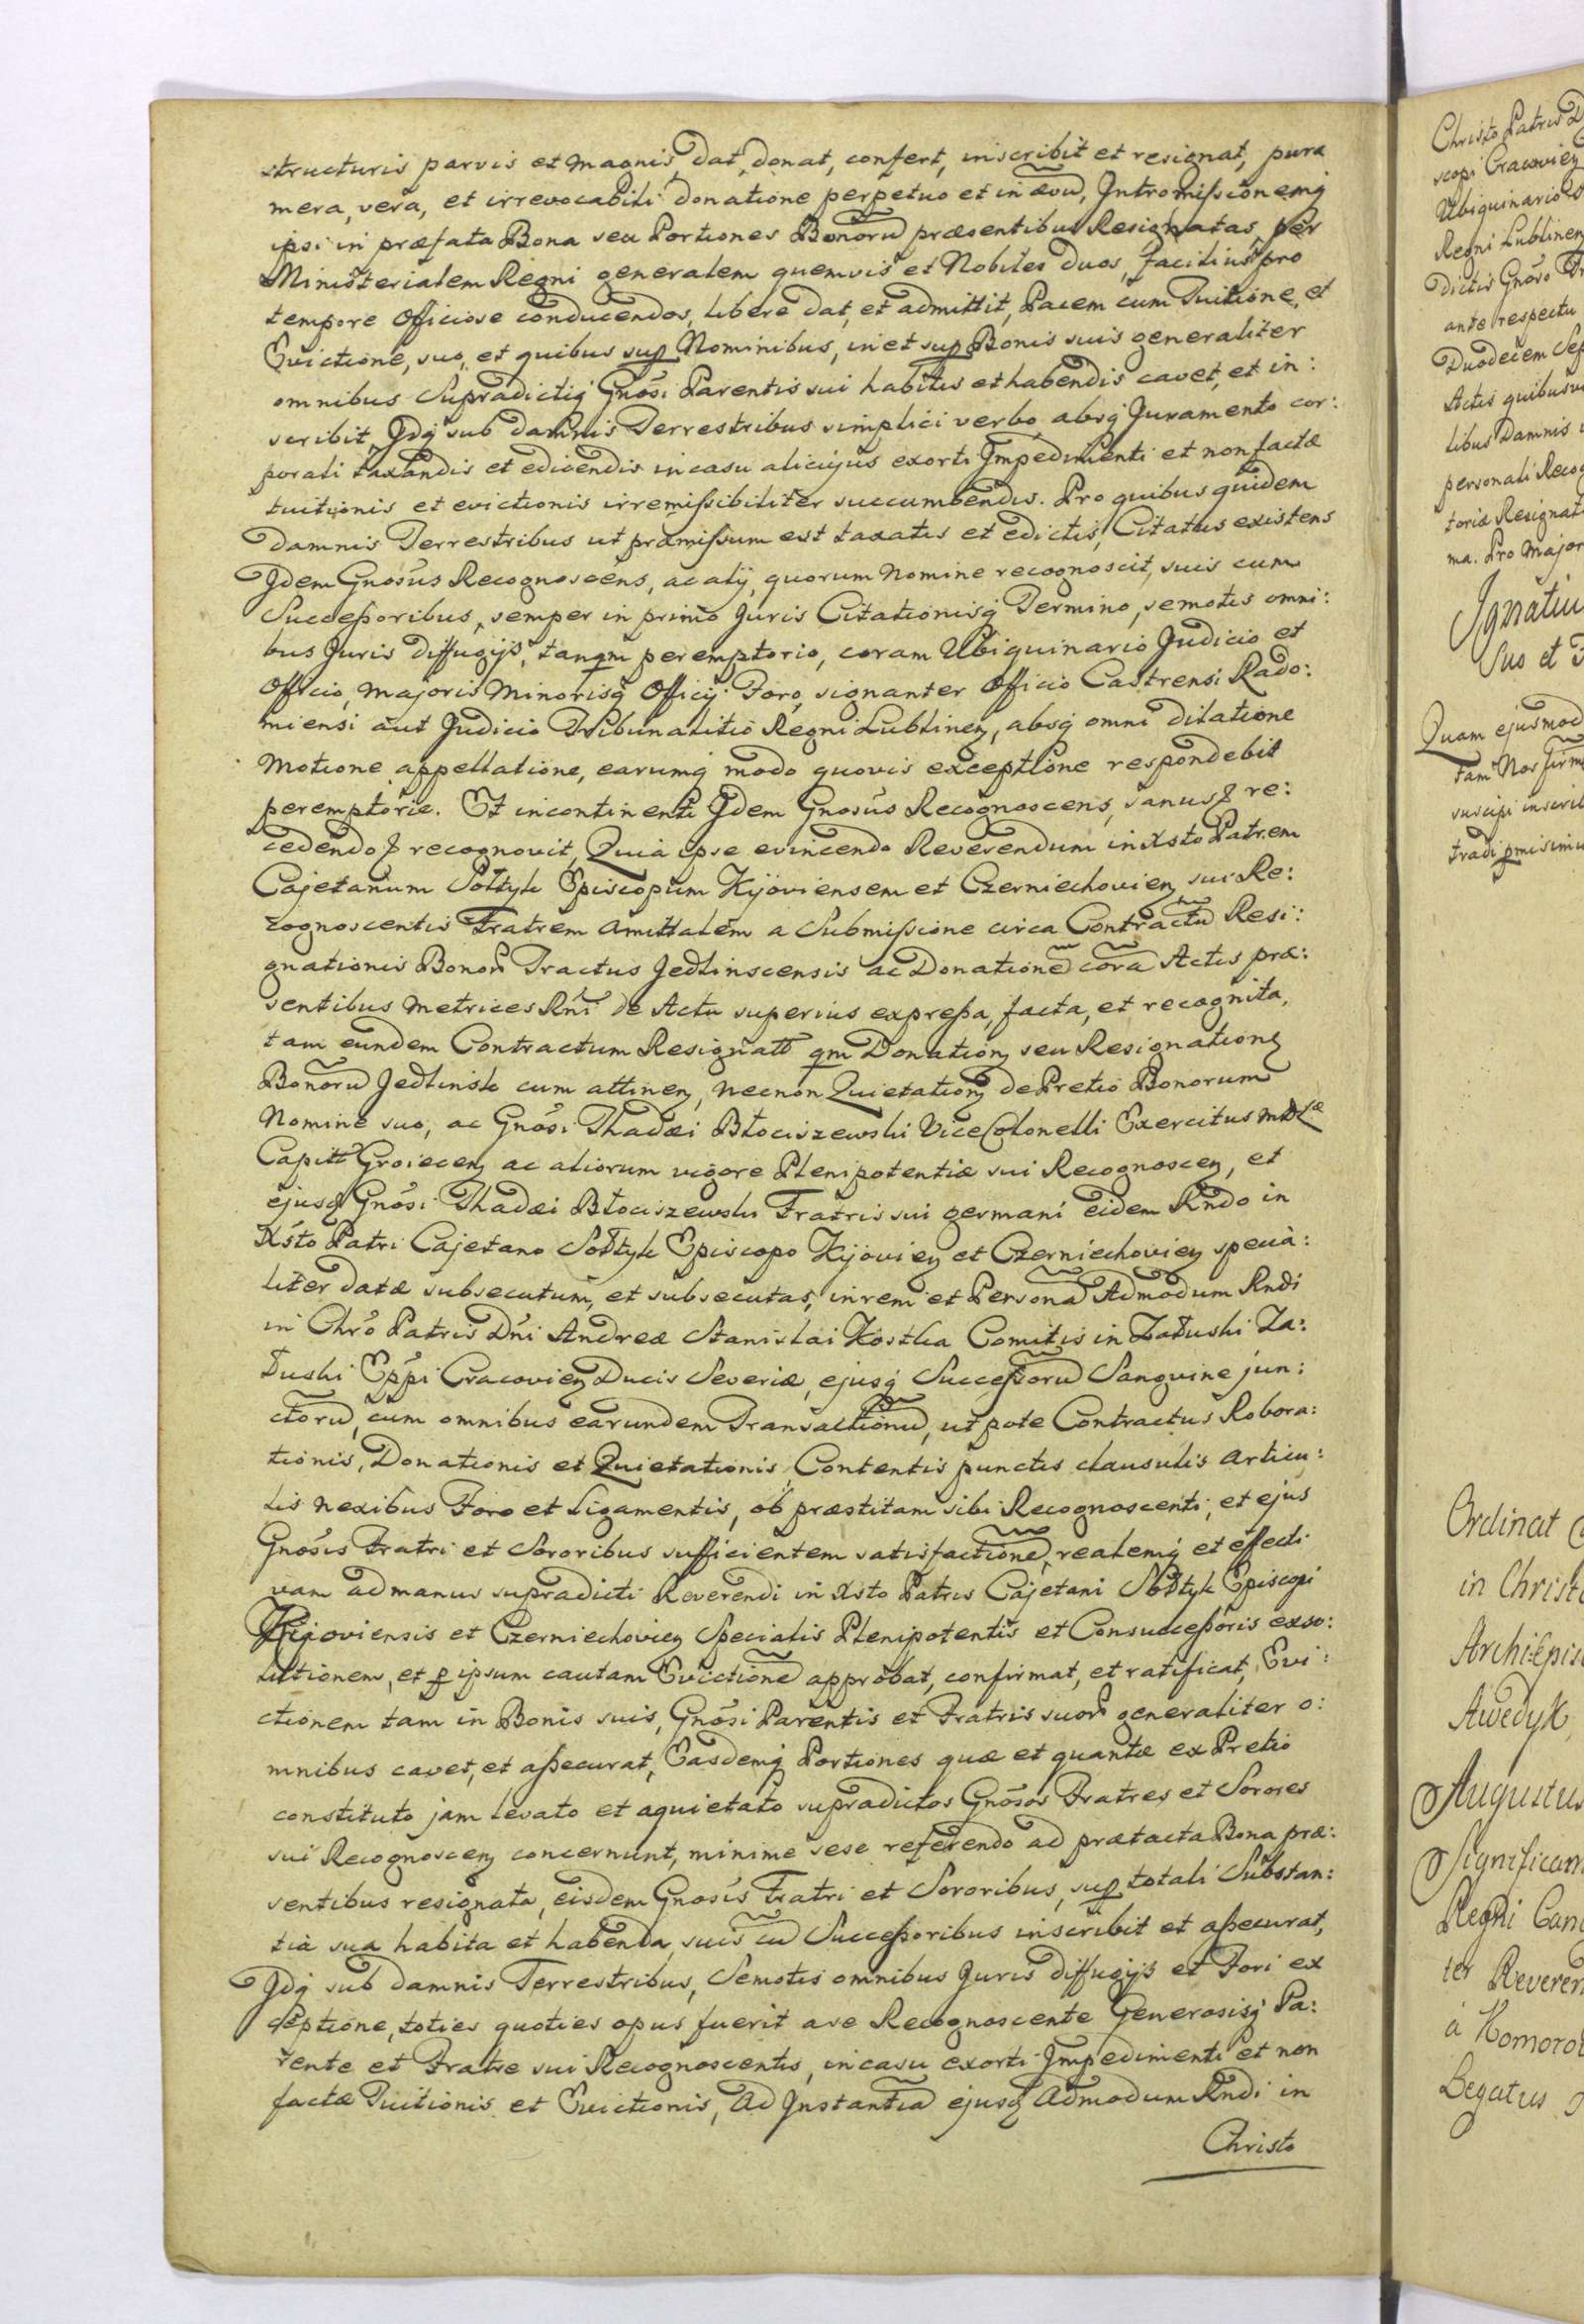 structuris parvis et magnis dat, donat, confert, inscribit et resignat, pura
mera, vera, et irrevocabili donatione perpetuo et in ævũ, Intromissionemq́
ipsi in præfata Bona seu Portiones Bonorũ præsentibus Resignatas per
Ministerialem Regni generalem quemvis et Nobiles duos, facilius pro
tempore Officiose conducendos, libere dat, et admittit, Pacem cum Tuitione, et
Evictione, suo, et quibus sup Nominibus, in et sup Bonis suis generaliter
omnibus Supradictiq́ Gnosi Parentis sui habitis et habendis cavet, et in:
scribit, Idq́ sub damnis Terrestribus simplici verbo absq́ Juramento cor:
porali taxandis et edicendis in casu alicujus exorti Impedimenti et non factæ
tuitionis et evictionis irremissibiliter succumbendis. Pro quibus quidem
damnis Terrestribus ut præmissum est taxatis et edictis, Citatus existens
Idem Gnosus Recognoscens, ac alij, quorum Nomine recognoscit, suis cum
Successoribus, semper in primo Juris Citationisq́ Termino, semotis omni:
bus Juris diffugijs, tanqm peremptorio, coram Ubiquinario Judicio et
Officio, majoris Minorisq́ Officij Foro, signanter Officio Castrensi Rado:
miensi aut Judicio Tribunalitio Regni Lublineņ, absq́ omni dilatione
Motione appellatione, earumq́ modo quovis exceptione respondebit
peremptorie. Et incontinenti Idem Gnosus Recognoscens, sanus re:
cedendo recognovit, Quia ipse evincendo Reverendum in Xsto Patrem
Cajetanum Sołtyk Episcopum Kijoviensem et Czerniechovieņ sui Re:
cognoscentis Fratrem Amittalem a Submissione circa Contractũ Resi:
gnationis Bonor Tractus Jedlinscensis ac Donationẽ corã Actis præ:
sentibus Metrices Rñi de Actu superius expressa, facta, et recognita,
tam eundem Contractum Resignatt qm Donationẹ seu Resignationẹ
Bonorũ Jedlinsk cum attineņ, necnon Quietationẹ de Pretio Bonorum
Nomine suo, ac Gnosi Thadæi Błociszewski ViceColonelli Exercitus MDLæ
Capitt Groieceņ ac aliorum vigore Plenipotentiæ sui Recognosceņ, et
ejusd Gnosi Thadæi Błociszewski Fratris sui germani eidem Rndo in
Xsto Patri Cajetano Sołtyk Episcopo Kijovieņ et Czerniechovieņ specia:
liter datæ subsecutum, et subsecutas, in rem et Personã Admodum Rndi
in Chro Patris Dni Andreæ Stanislai Kostka Comitis in Załuski Za:
łuski Eppi Cracovieņ Ducis Severiæ, ejusq́ Successorũ Sanguine jun:
ctorũ, cum omnibus earundem Transactionũ, ut pote Contractus Robora:
tionis, Donationis et Quietationis, Contentis punctis clausulis articu:
lis nexibus Foro et ligamentis, ob præstitam sibi Recognoscenti, et ejus
Gnosis Fratri et Sororibus sufficientem satisfactionẽ, realemq́ et effecti
vam ad manus supradicti Reverendi in Xsto Patris Cajetani Sołtyk Episcopi
Kijoviensis et Czerniechovieņ Specialis Plenipotentis et Consuccessoris exso:
lutionem, et p ipsum cautam Evictionẽ approbat, confirmat, et ratificat, Evi:
ctionem tam in Bonis suis, Gnosi Parentis et Fratris suor generaliter o:
mnibus cavet, et assecurat, Easdemq́ Portiones quæ et quantæ ex Pretio
constituto jam levato et aquietato supradictos Gnosos Fratres et Sorores
sui Recognosceņ concernunt, minime sese referendo ad prætacta Bona præ:
sentibus resignata, eisdem Gnosis Fratri et Sororibus, sup totali Substan:
tia sua habita et habenda, suis cũ Successoribus inscribit et assecurat,
Idq́ sub damnis Terrestribus, Semotis omnibus Juris diffugijs et Fori ex
ceptione, toties quoties opus fuerit a se Recognoscente Generosisq́ Pa:
rente et Fratre sui Recognoscentis, in casu exorti Impedimenti et non
factæ Tuitionis et Evictionis, Ad Instantiã ejusd Admodum Rndi in
Christo
Christo Patris D
scopi Cracovieņ
Ubiquinario
Regni Lublineņ
dictis Gnoso
ante respectu
Duodecem Sep
Actis quibusv
libus Damnis
personali Recog
toriæ Resignat
ma. Pro Major
Ignatiu
Suo et
Quam ejusmod
tam Nos firm
suscipi inscrib
tradi pmisim
Ordinat
in Christo
Archiepis
Awedyk
Augustus
Significam
Regni Can
ter Reveren
à Komoro
Legatus